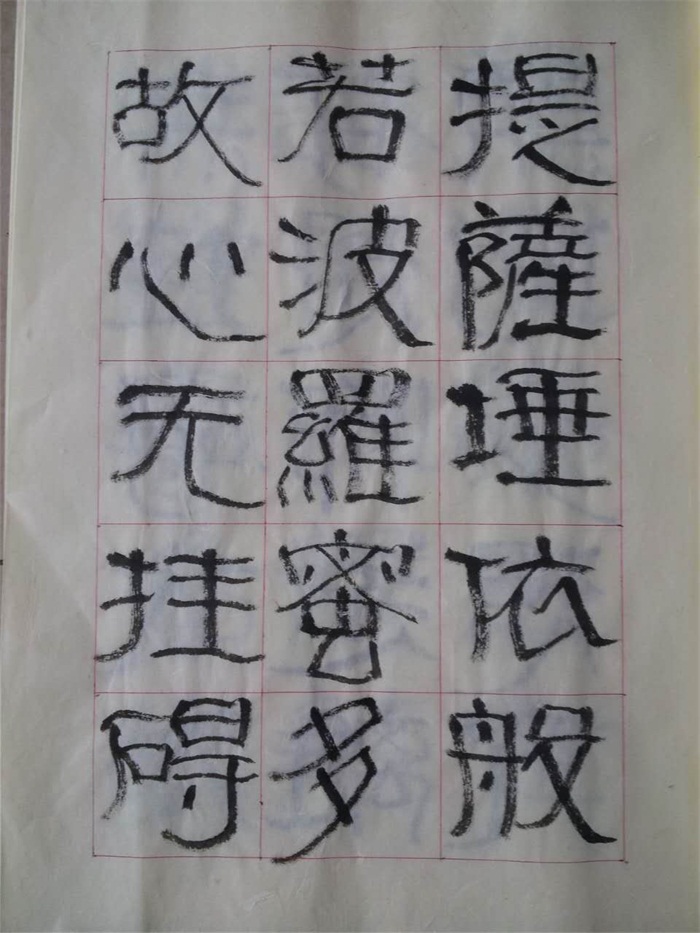 提薩埵依般
若波羅蜜多
故心无挂碍